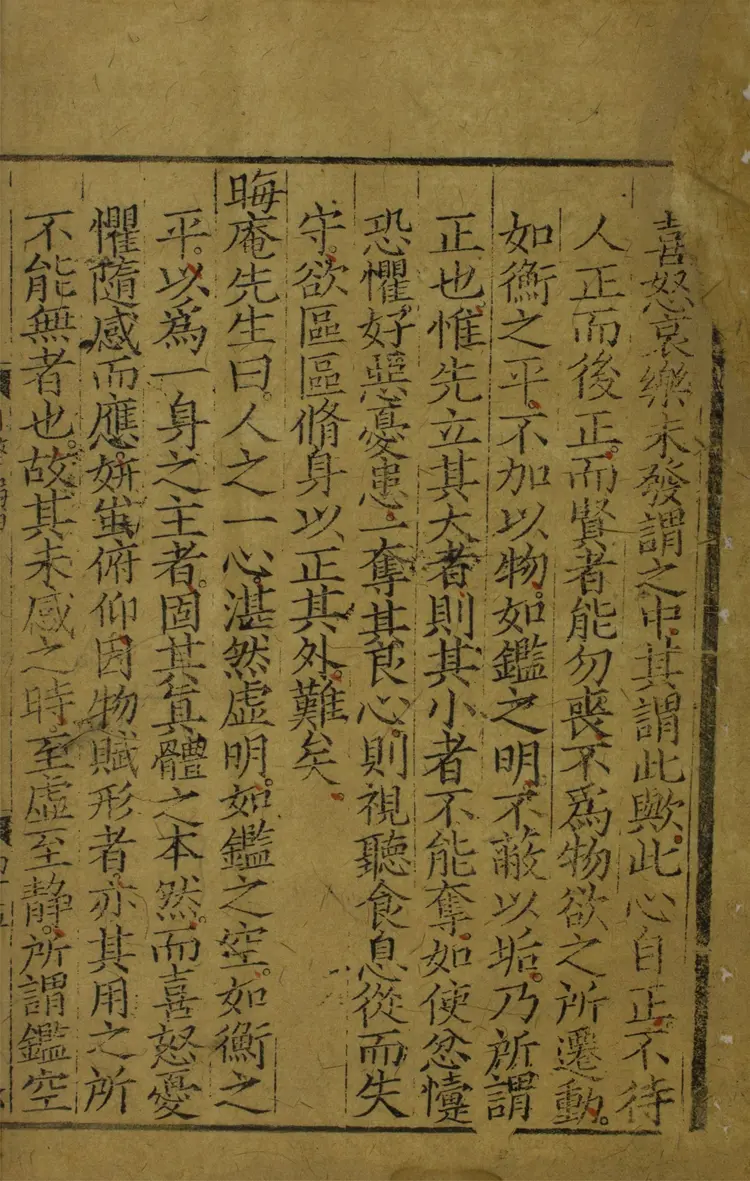 喜怒哀樂未發謂之中其謂此歟此心自正不待
人正而後正而賢者能勿喪不爲物欲之所遷動
如衡之平不加以物如鑑之明不蔽以垢乃所謂
正也惟先立其大者則其小者不能奪如使忿懥
恐懼好惡憂患一奪其良心則視聽食息從而失
守欲區區脩身以正其外難矣
晦庵先生曰人之一心湛然虛明如鑑之空如衡之
平以爲一身之主者固其真體之本然而喜怒憂
懼隨感而應妍蚩俯仰因物賦形者亦其用之所
不能無者也故其未感之時至虛至靜所謂鑑空